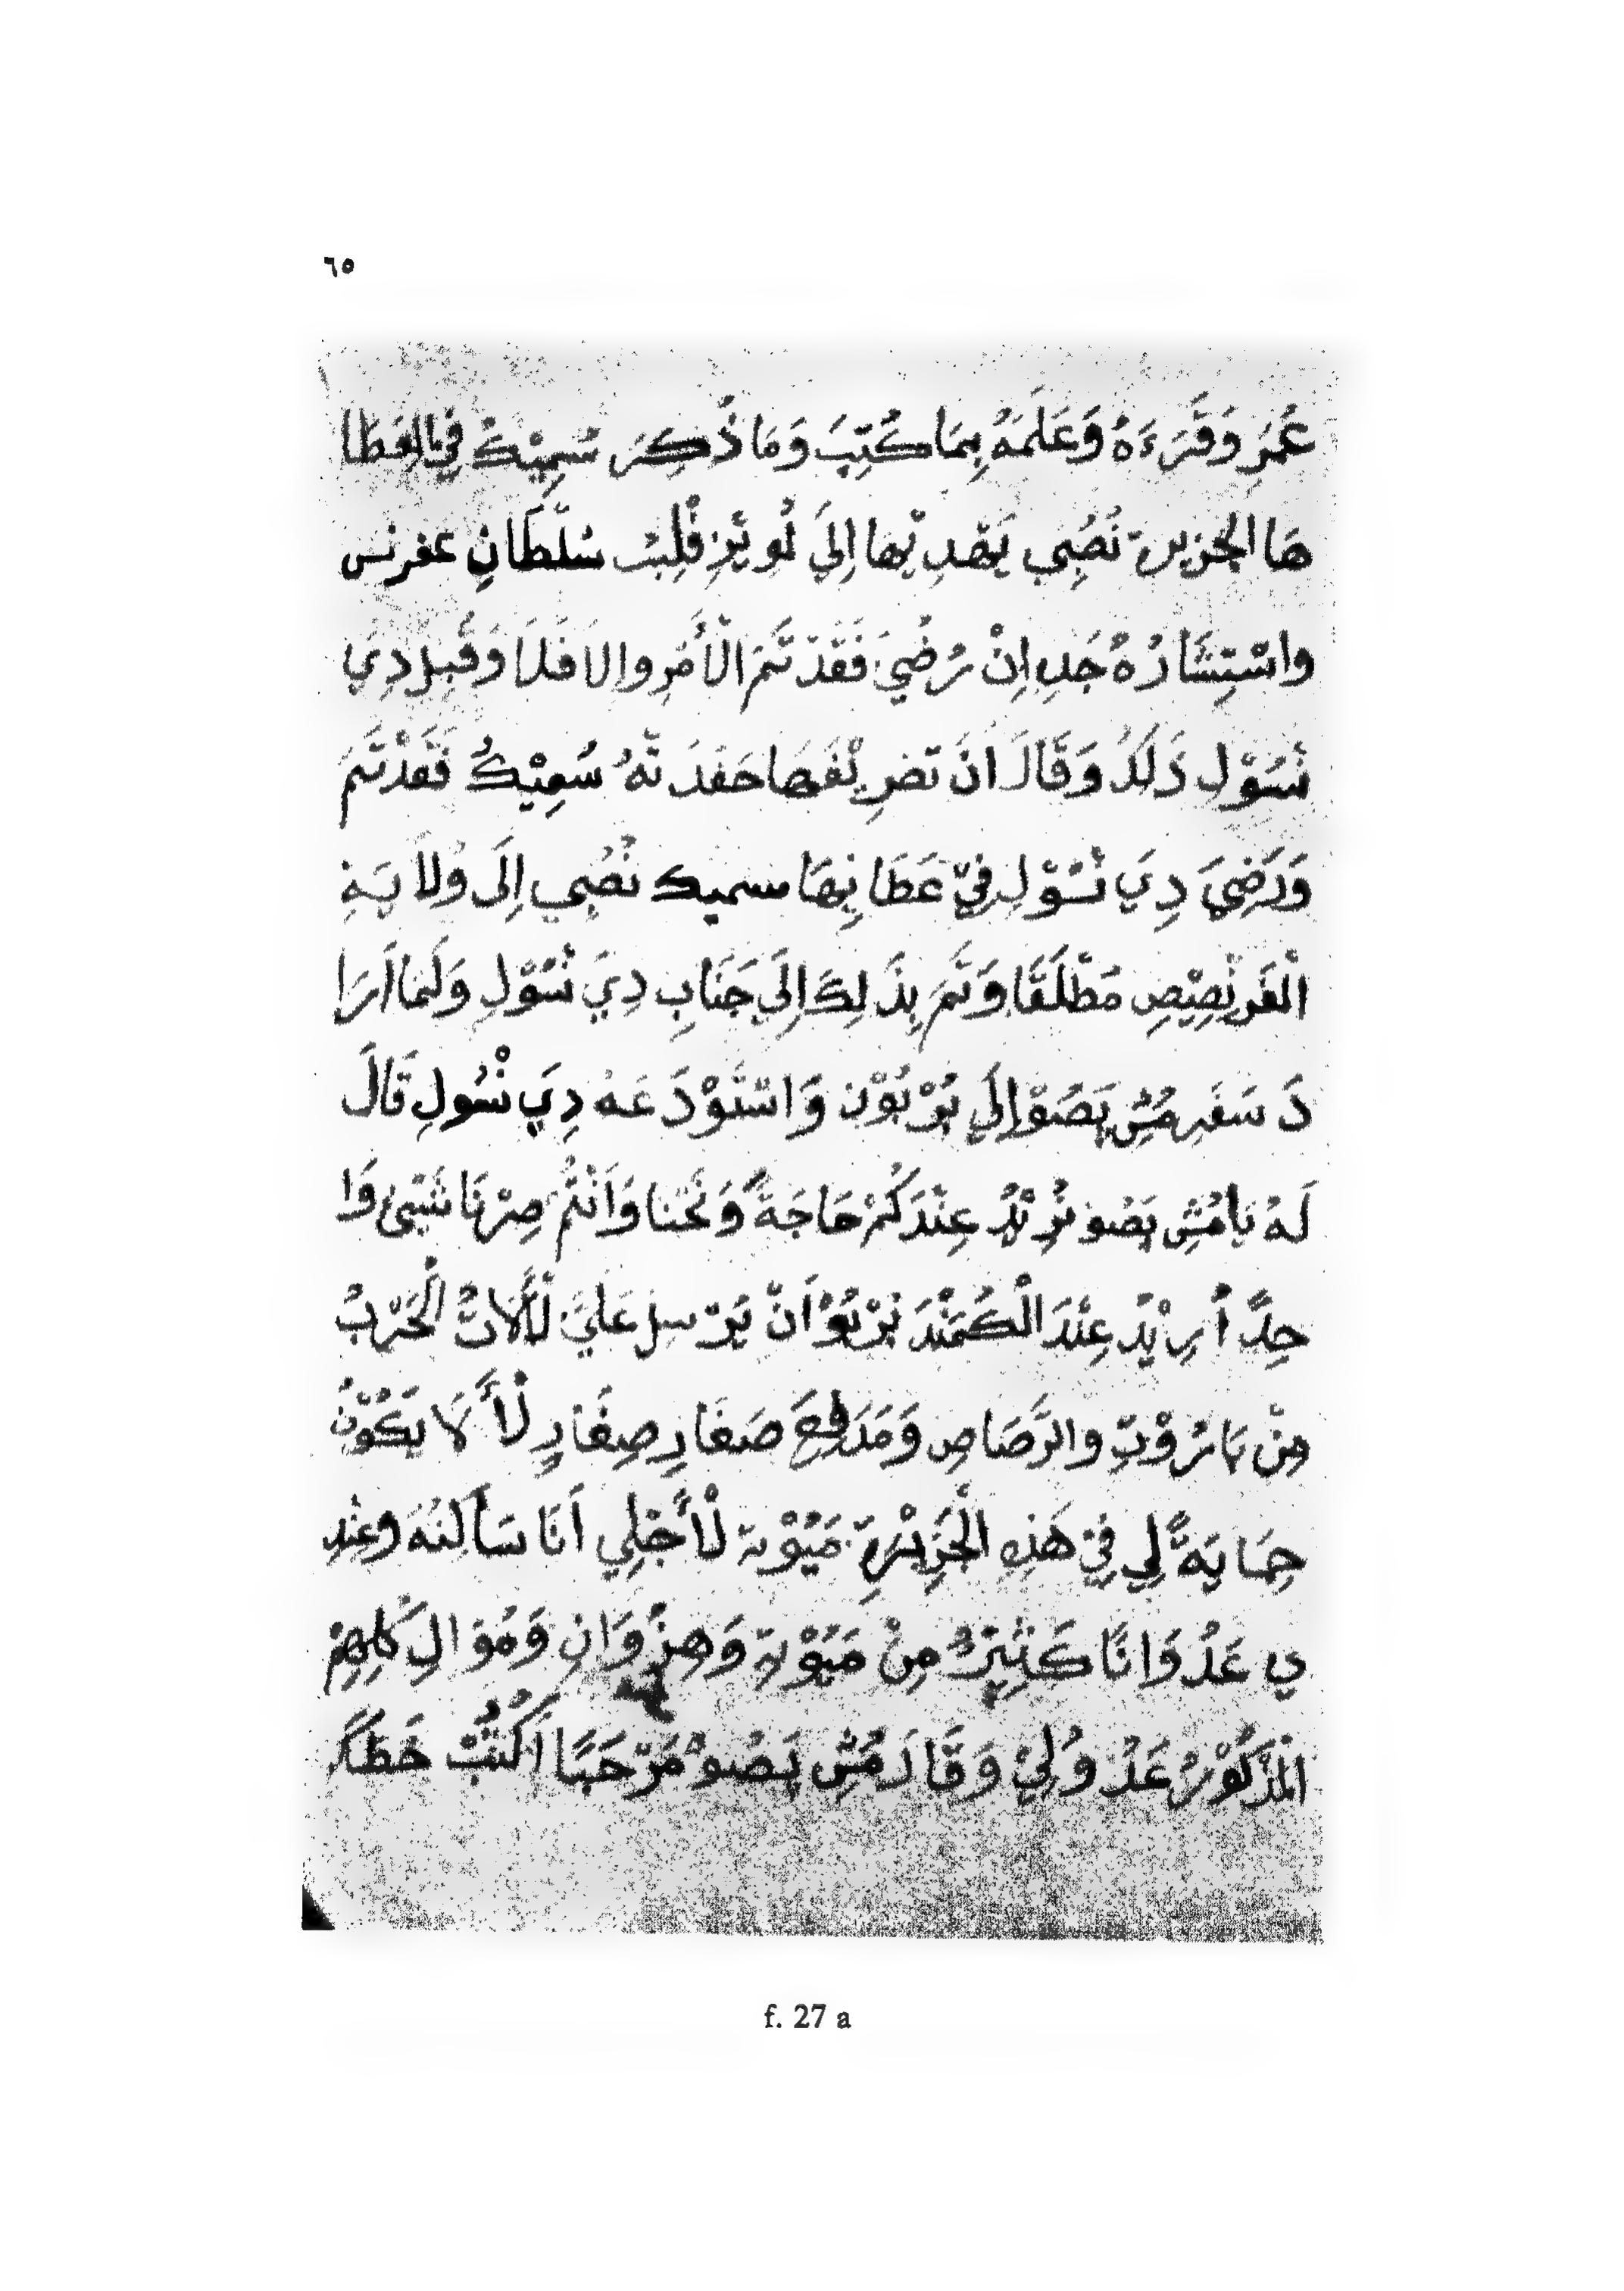 ٦٥
عُمَرَ وَقَرَءَهُ وَعَلَمَهُ بِمَا كُتِبَ وَمَا ذُكِرَ سُمِيْكُ فِي اعْطَا
هَا الجزيرة نُصُبِي يَهْدِيْهَا اِلَي لُوِيْزِ فْلِيْبْ سُلْطَانِ عفرنس
وَاسْتِشَارُهُ جَدِ اِنْ رُضِيَ فَقَدْ تَمَ الْأَمْرِ وَالا فَلَا وَقَبِلِ دِي
نْسُوْلِ ذَلَكُ وَقَالَ انْ تَضرِ لْفَهَا حَفَدَتُهُ سُمِيْكُ فَقَدْ تَمَ
وَرَضِيَ دِيَ نْسُوْلِ فِيْ عَطَانِهَا سميك نُصُبِي اِلَى وُلَايَةِ
الْفَرنْصِيْصِ مُطْلَقًا وَتَمَ بِذَلِكَ اِلَي جَنَابِ دِيَ نْسُوْلِ وَلَمَا اَرَا
دَ سَفَرِ مُشِ پَصُوْ اِلَي بُرْبُوْن وَاسْتَوْدَعَهُ دِيَ نْسُولِ قَالَ
لَهُ يَا مُشِ پَصُو نُرِيْدُ عِنْدَكُمْ حَاجَةً وَنَحْنَا وَاَنْتُمْ صِرْنَا شَيْئ وَا
حِدً أُرِيْدُ عِنْدَ الْكُمَنْدَ بُرْبُوْ اَنْ يَرْسِلِ عَلَيَ لْأَلَاتُ الْحَرْبُ
مِنْ بَارُوْتِ وَالرَّصَاصِ وَمَدَافِعَ صَغَارِ صِغَارٍ لْأَ لَا يَكُوْنُ
حِمَايَةً لِي فِيْ هَذِهِ الْجَزِيْرَةِ مَيُوْتَ لْأَجْلِي اَنَا سَاَلْتُهَ وَعِنْدِ
ي عَدُوَانًا كَثِيْرُ مِنْ مَيُوْتِ وَهِنْزُوَانِ وَمُوَالِ كُلِهِمْ
الْمَذْكُوْرُ عَدُوُ لِيْ وَقَالَ مُشِ پَصُوْ مَرْحَبًا اَكْتُبْ خَطَاكَ
f. 27 a